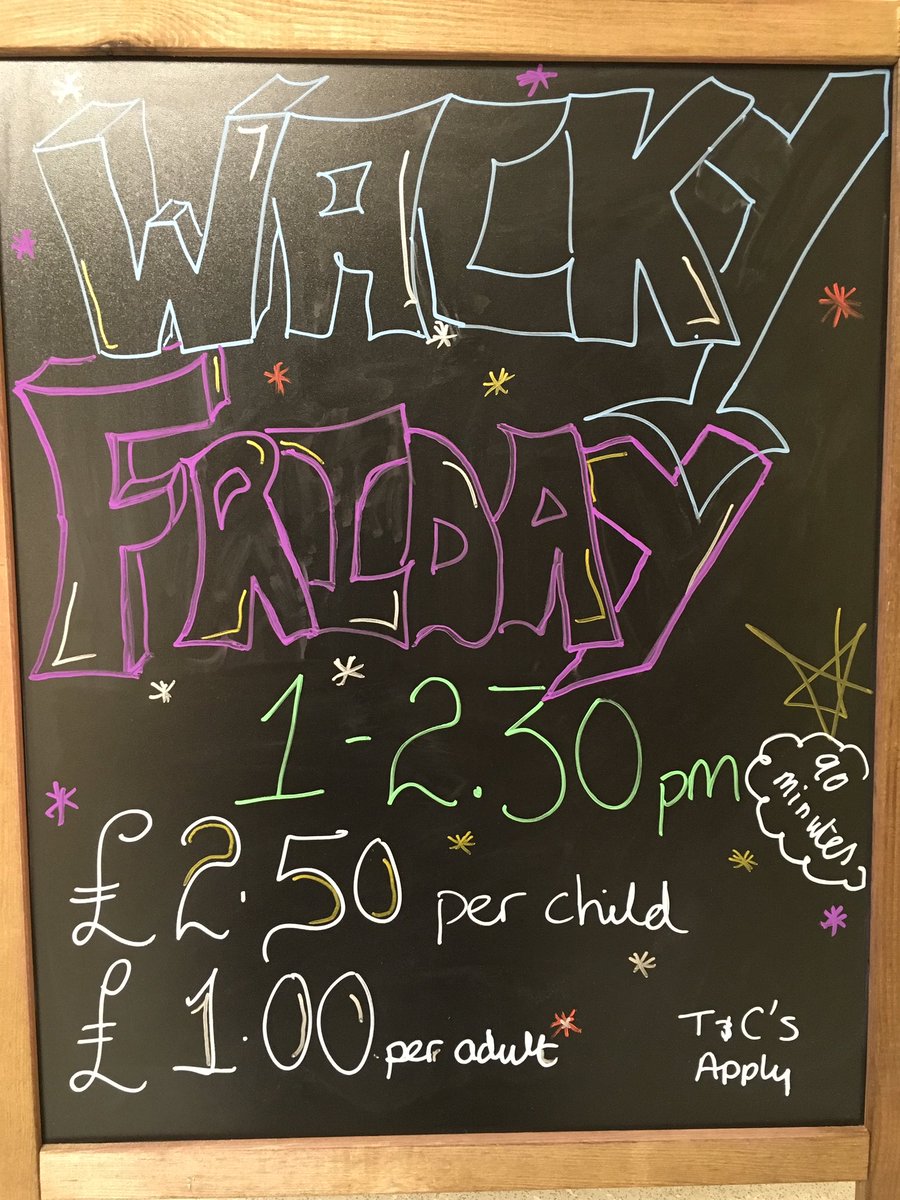 WACKY
FRIDAY
1 - 2.30 pm
90
minutes
£2.50 per child
£1.00 per adult
T&C's
Apply